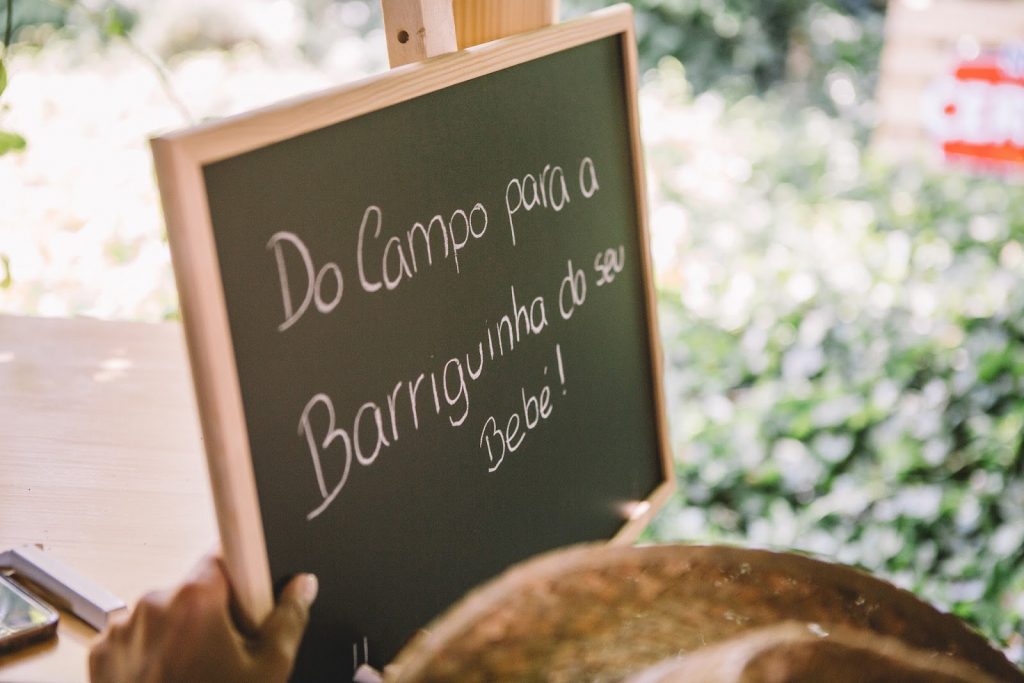 Do Campo para a
Barriguinha do seu
Bebé!